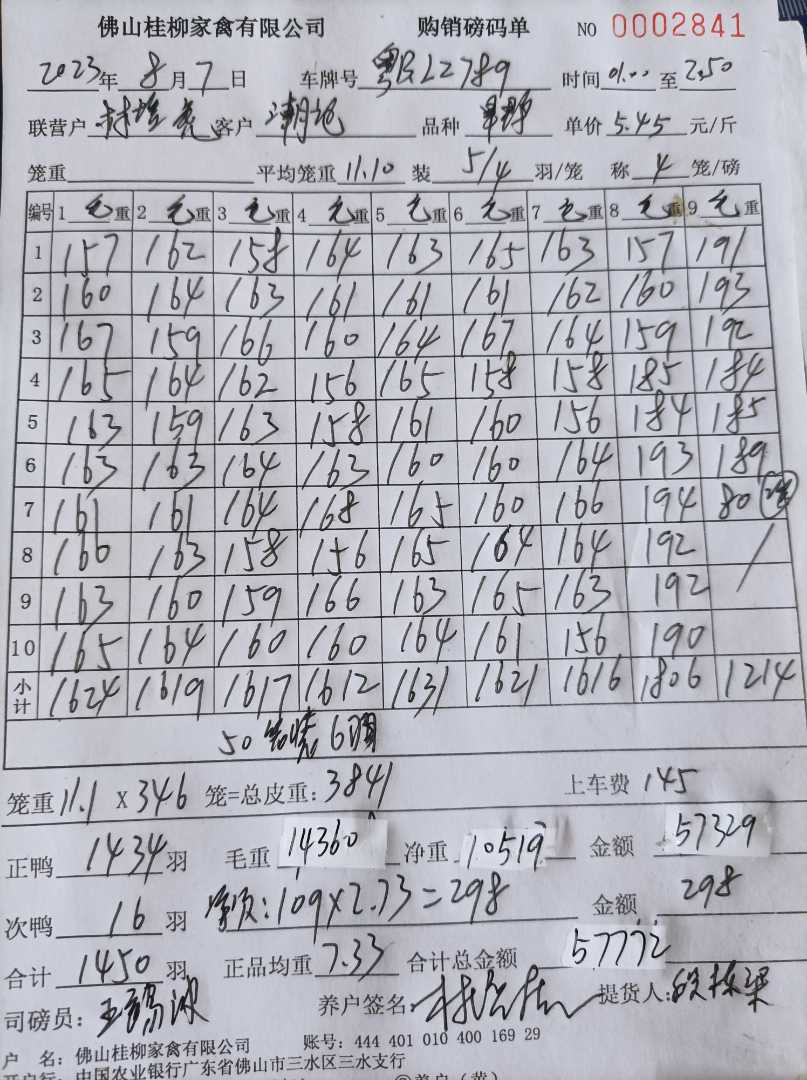 佛山桂柳家禽有限公司 购销磅码单 NO 0002841
2023年 8月7日 车牌号 粤 L2789 时间 01:00 至 2:50
联营户 林 亮 客户 潮 品种 单价 5.45 元/斤
笼重 平均笼重 11.10 装 5/4 羽/笼 称 4 笼/磅
编号 1 毛重 2 毛重 3 毛重 4 毛重 5 毛重 6 毛重 7 毛重 8 毛重 9 毛重
1 157 162 158 164 163 165 163 157 191
2 160 164 163 161 161 161 162 160 193
3 167 159 166 160 164 167 164 159 192
4 165 164 162 156 165 158 158 185 184
5 163 159 163 158 161 160 156 184 185
6 163 163 164 163 160 160 164 193 189
7 161 161 164 168 165 160 166 194 80
8 160 163 158 156 165 164 164 192 /
9 163 160 159 166 163 165 163 192
10 165 164 160 160 164 161 156 190
小计 1624 1619 1617 1612 1631 1621 1616 1806 1214
50 笼装 6
笼重 11.1 X 346 笼=总皮重: 3841 上车费 145
正鸭 1434 羽 毛重 14360 净重 10519 金额 57329
次鸭 16 羽 :109×2.73=298 金额 298
合计 1450 羽 正品均重 7.33 合计总金额 57772
司磅员: 王 养户签名: 林 提货人: 梁
户 名: 佛山桂柳家禽有限公司 账号: 444 401 010 400 169 29
开户行: 中国农业银行广东省佛山市三水区三水支行